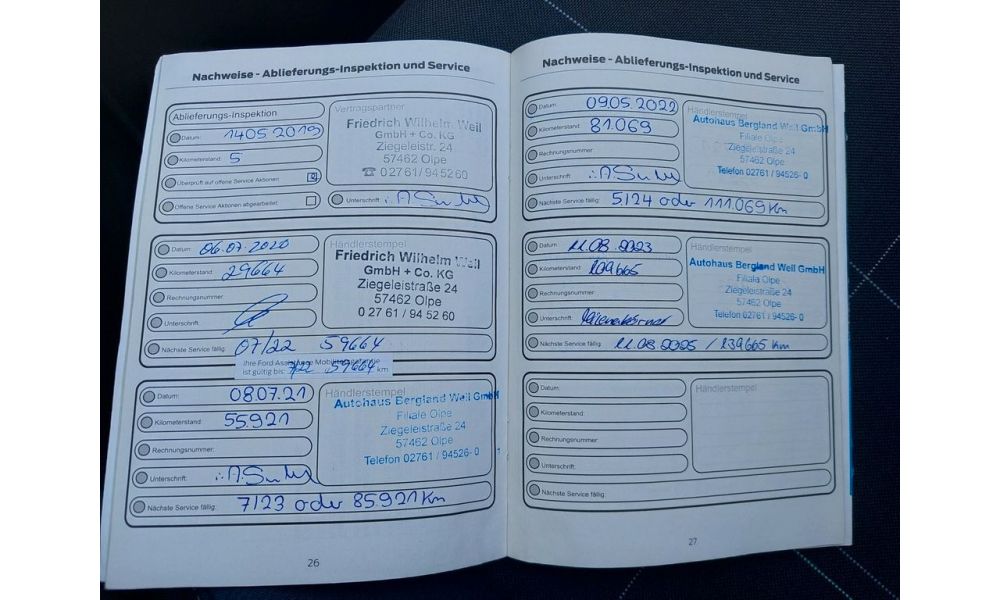 Nachweise - Ablieferungs-Inspektion und Service
Ablieferungs-Inspektion
Datum: 14 05 2019
Kilometerstand: 5
Überprüft auf offene Service Aktionen:
Offene Service Aktionen abgearbeitet:
Vertragspartner
Friedrich Wilhelm Weil
GmbH + Co. KG
Ziegeleistr. 24
57462 Olpe
☎ 0 27 61 / 94 52 60
Unterschrift:
Datum: 06.07.2020
Kilometerstand: 29664
Rechnungsnummer:
Unterschrift:
Händlerstempel
Friedrich Wilhelm Weil
GmbH + Co. KG
Ziegeleistraße 24
57462 Olpe
0 27 61 / 94 52 60
Nächste Service fällig: 07/22 59664
Ihre Ford Assistance Mobilitätsgarantie
ist gültig bis: 7/22 59664 km
Datum: 08.07.21
Kilometerstand: 55921
Rechnungsnummer:
Unterschrift:
Händlerstempel
Autohaus Bergland Weil GmbH
Filiale Olpe
Ziegeleistraße 24
57462 Olpe
Telefon 02761 / 94526- 0
Nächste Service fällig: 7/23 oder 85921 Km
26
Nachweise - Ablieferungs-Inspektion und Service
Datum: 09.05.2022
Kilometerstand: 81.069
Rechnungsnummer:
Unterschrift:
Händlerstempel
Autohaus Bergland Weil GmbH
Filiale Olpe
Ziegeleistraße 24
57462 Olpe
Telefon 02761 / 94526- 0
Nächste Service fällig: 5/24 oder 111.069 Km
Datum: 11.08.2023
Kilometerstand: 109665
Rechnungsnummer:
Unterschrift:
Händlerstempel
Autohaus Bergland Weil GmbH
Filiale Olpe
Ziegeleistraße 24
57462 Olpe
Telefon 02761 / 94526- 0
Nächste Service fällig: 11.08.2025 / 139665 Km
Datum:
Kilometerstand:
Rechnungsnummer:
Unterschrift:
Händlerstempel
Nächste Service fällig:
27